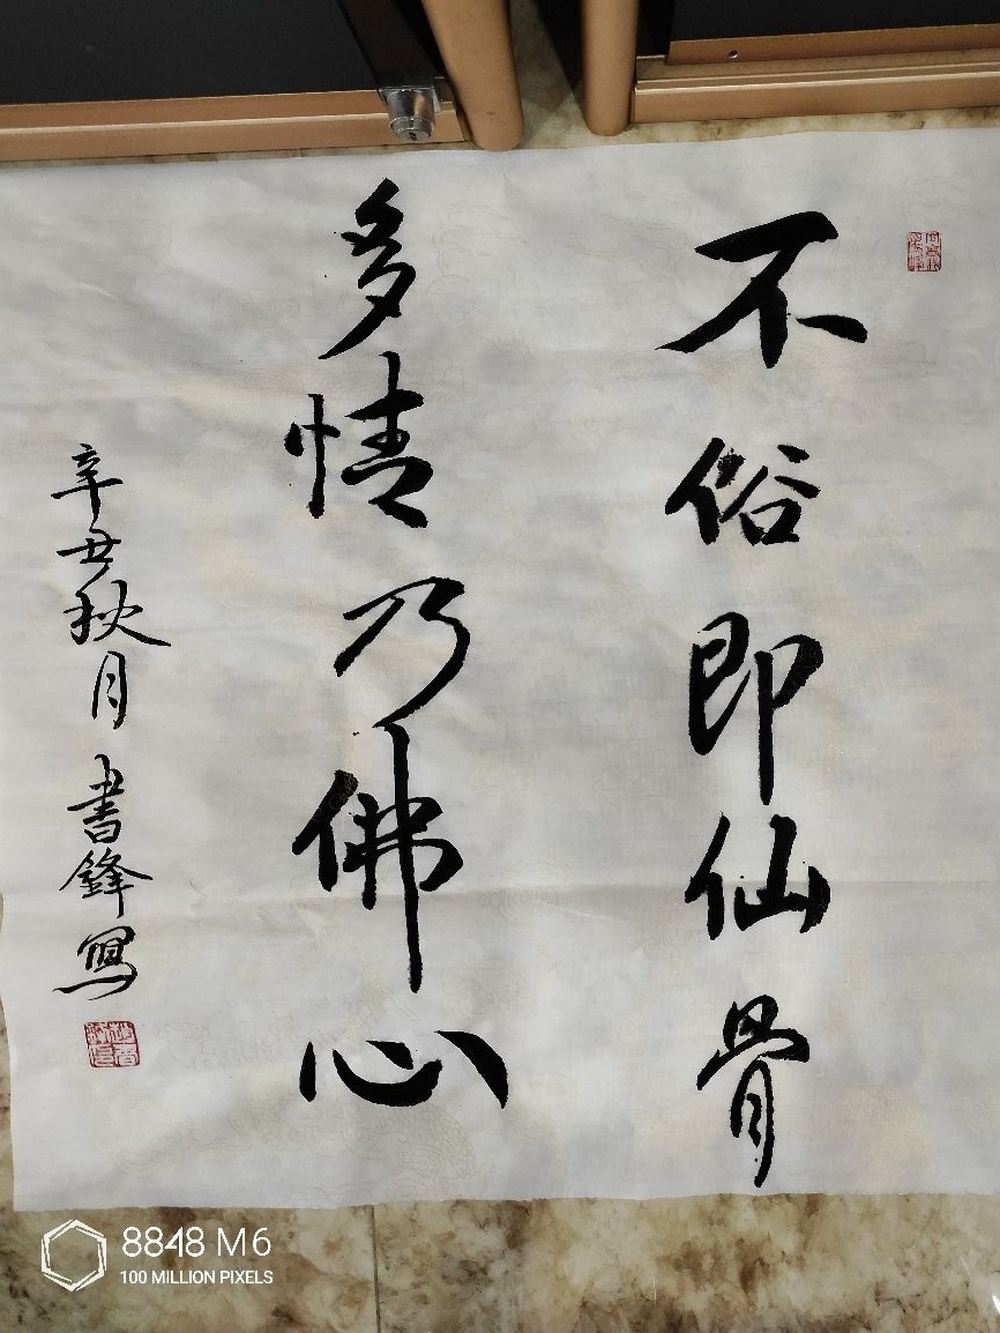 不俗即仙骨
多情乃佛心
辛丑秋月書鋒寫
8848 M6
100 MILLION PIXELS